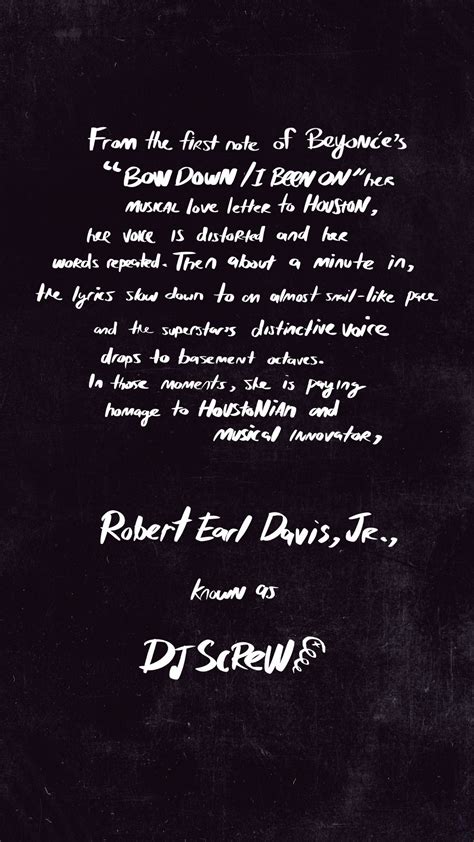 From the first note of Beyoncé's
"BOW DOWN / I BEEN ON" her
MUSICAL love letter to HOUSTON,
her voice is distorted and her
words repeated. Then about a minute in,
the lyrics slow down to an almost snail-like pace
and the superstar's distinctive voice
drops to basement octaves.
In those moments, she is paying
homage to HOUSTONIAN and
MUSICAL INNOVATOR,
Robert Earl Davis, Jr.,
known as
DJ SCREW